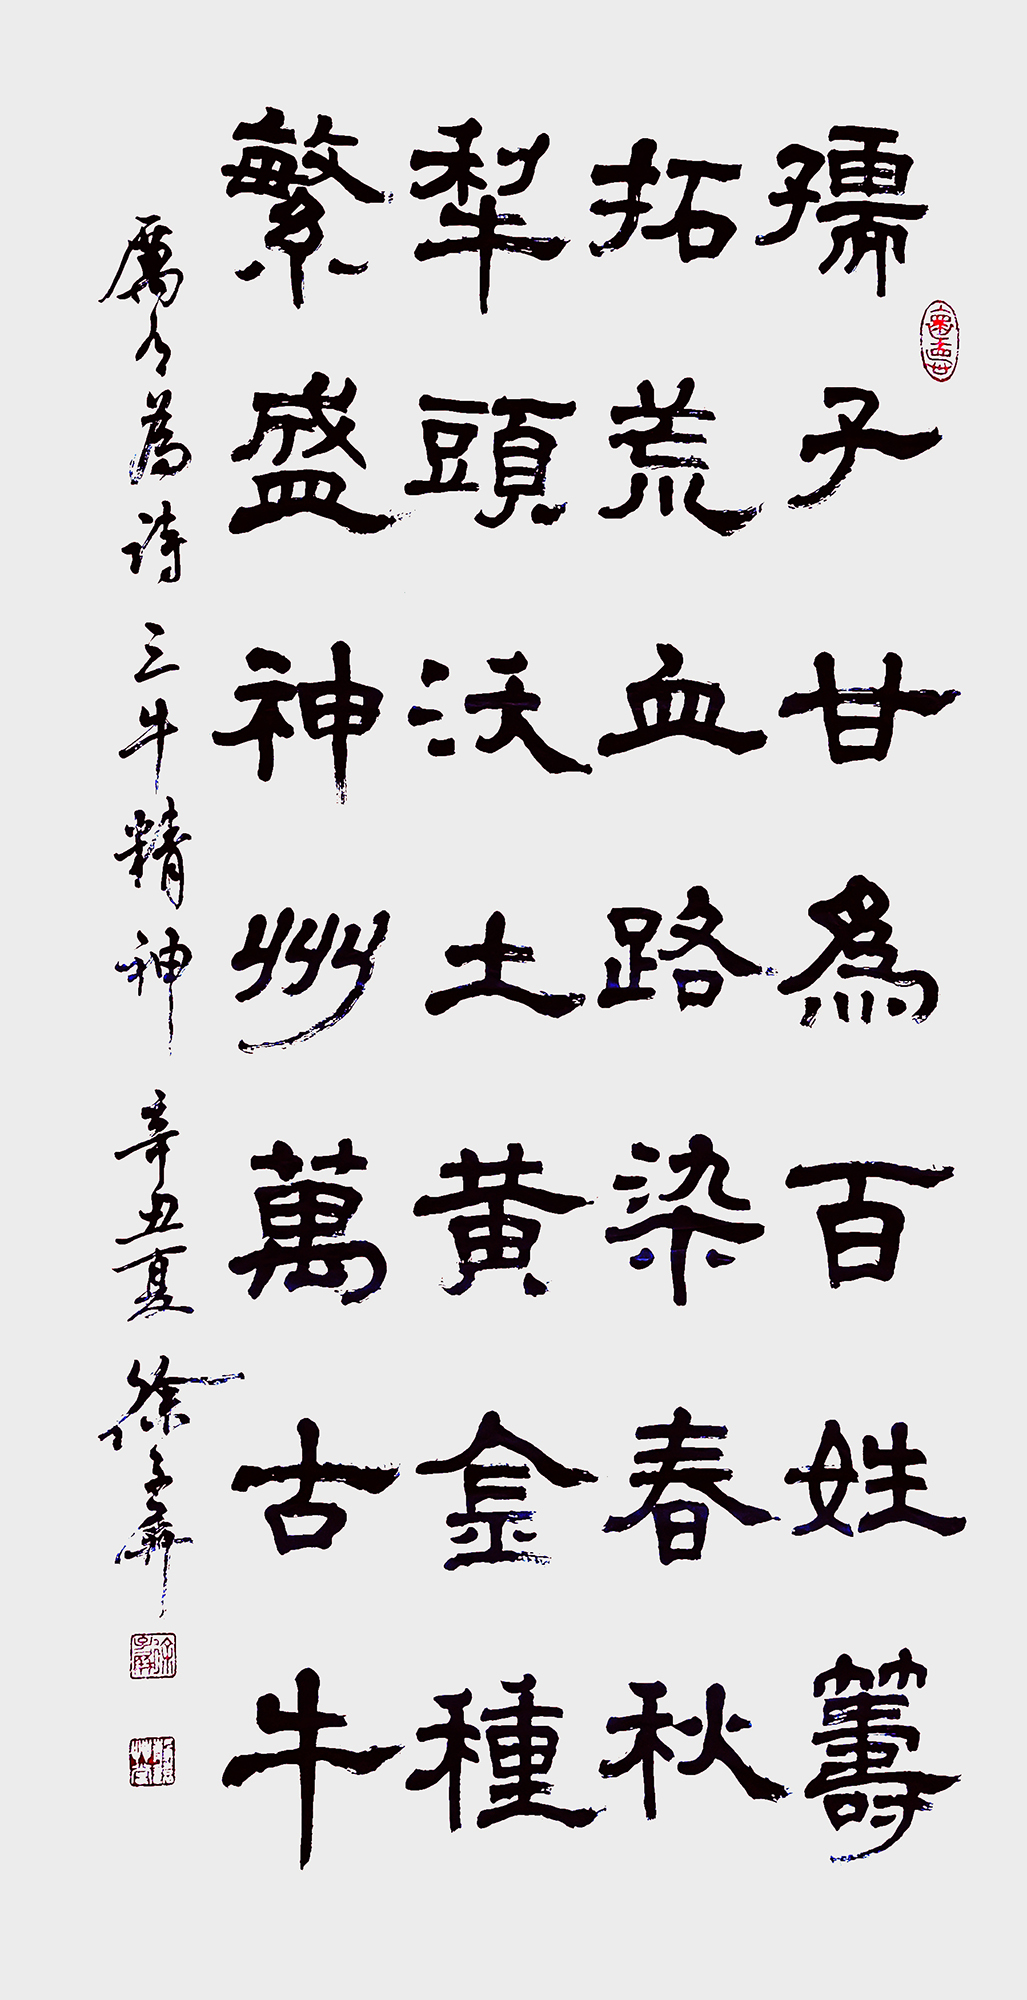 孺子甘為百姓籌
拓荒血路染春秋
犁頭沃土黄金種
繁盛神州萬古牛
厲有為詩三牛精神辛丑夏徐